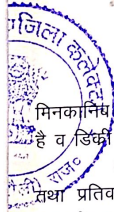 जिला कलेक्ट
मिनकानिब
है व डिंकी
राज०
तथा प्रतिव